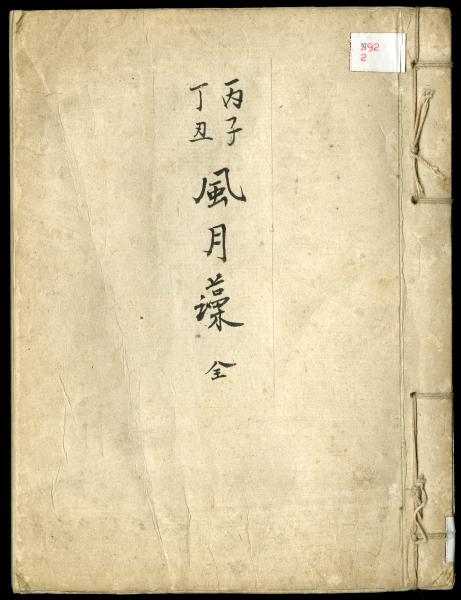 丙子
丁丑
風月藻 全
N92
2